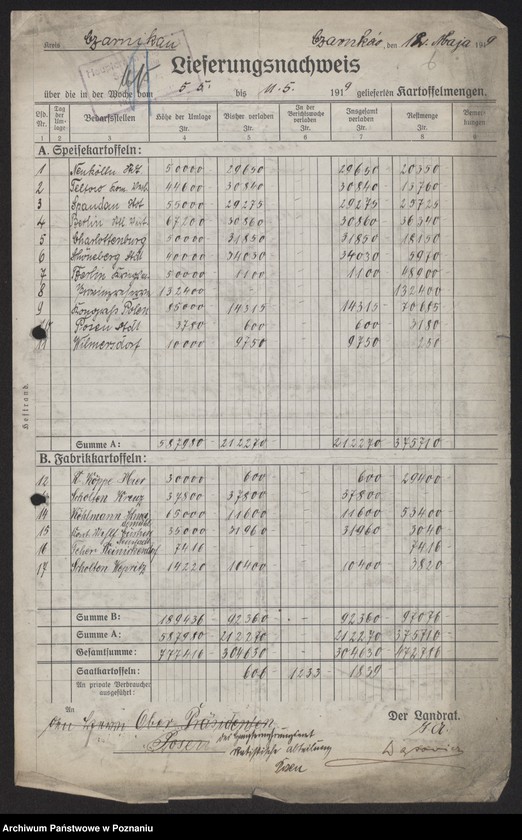 Kreis Czarnikau Czarnków, den 12. Maja 1919
Lieferungsnachweis
über die in der Woche vom 5.5. bis 11.5. 1919 gelieferten Kartoffelmengen.
Lfd. Nr. Tag der Umlage Bedarfsstellen Höhe der Umlage Ztr. Bisher verladen Ztr. In der Berichtswoche verladen Ztr. Insgesamt verladen Ztr. Restmenge Ztr. Bemerkungen
1 2 3 4 5 6 7 8 9
A. Speisekartoffeln:
1 Neukölln 50000 29650 29650 20350
2 Teltow 44600 30840 30840 13760
3 Spandau 55000 29275 29275 25725
4 Berlin 67200 30860 30860 36340
5 Charlottenburg 50000 31850 31850 18150
6 Schöneberg 40000 34030 34030 5970
7 Berlin 50000 1100 1100 48900
8 132400 - - 132400
9 Kongreß Polen 85000 14315 14315 70685
Posen Stdt 3780 600 600 3180
11 Wilmersdorf 10000 9750 9750 250
Heftrand.
Summe A: 587980 212270 212270 375710
B. Fabrikkartoffeln:
12 Köppe 30000 600 600 29400
Scholten Kreuz 37800 37800 37800
14 65000 11600 11600 53400
15 35000 31960 31960 3040
16 7416 7416
17 Scholten 14220 10400 10400 3820
Summe B: 189436 92360 92360 97076
Summe A: 587980 212270 212270 375710
Gesamtsumme: 777416 304630 304630 472786
Saatkartoffeln: 606 1233 1839
An private Verbraucher ausgeführt:
An
den Herrn Ober Präsidenten
Posen
Statistische Abteilung
Posen
Der Landrat.
Archiwum Państwowe w Poznaniu